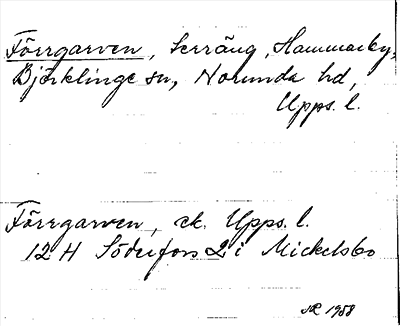 Förrgarven, Terräng, Hammarby,
Björklinge sn, Norunda hd,
Upps. l.
Förrgarven, ek. Upps. l.
12 H Söderfors 2 i Mickelsbo
NR 1958